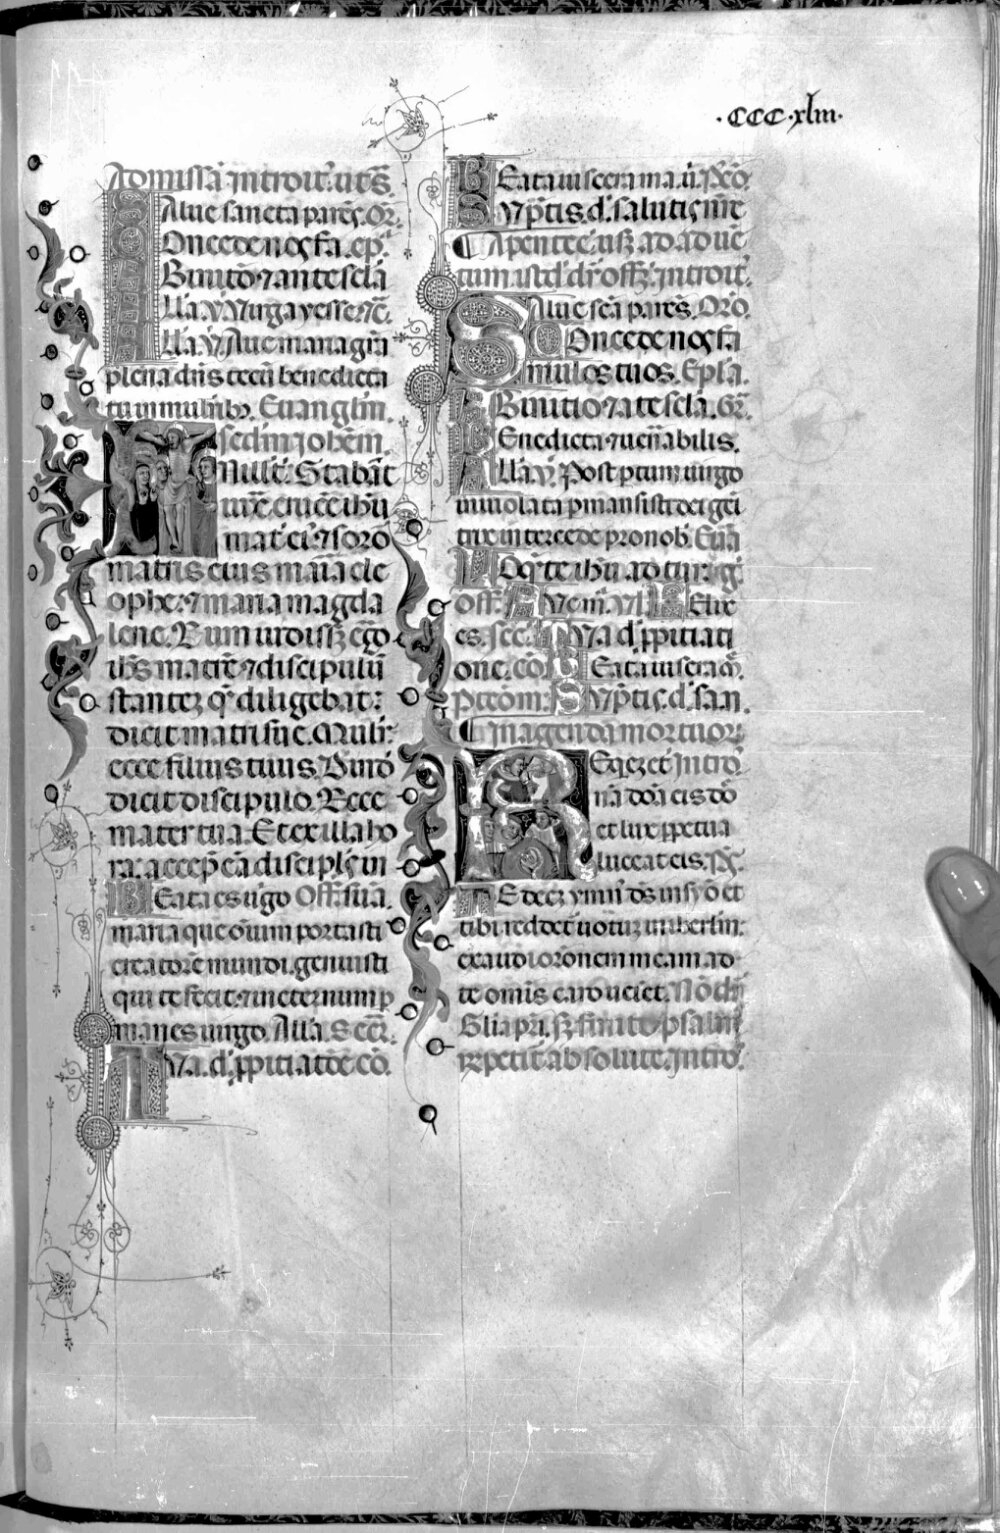 ·CCC·xliii·
Ad missã introit᷒. ut s̃.
Salue sancta parẽs. Or̃.
Concede nos fa. ep̃.
Ab initio ⁊ ante scła
Alła. ṽ. Virga yesse ⁊c̃.
Alła. ṽ. Aue maria grã
plena dñs tecũ benedicta
tu in mulirib᷒. Euangliũ.
sedm̃ johẽm.
In illo t̃. Stabãt
iuxˉ crucẽ ihũ
mat᷒ ei᷒. ⁊ soro
matris eius maria cle
ophe. ⁊ maria magda
lene. Cum uidissꝫ ergo
ihs matrẽ ⁊ discipulũ
stantez qˀ diligebat:
dicit matri sue. Mulier
ecce filius tuus. Deinđ
dicit discipulo. Ecce
mater tua. Et ex illa ho
ra. accep̃ eã discipl̃s in
Beata es u̾go Off̃. suã.
maria que õium portasti
creatorẽ mundi. genuisti
qui te fecit. ⁊ in eternum p̱
manes uirgo. Alła. Secr̃.
Tua. d̃. ꝓpitiatõe. cõ.
Beata uiscera ma. ũ. P̃cõ.
Sũpⁱtis. d̃. salutis nr̃e
¶ A pentec̃. usꝫ. ad. aduẽ
tum. istđ. dr̃ off̃. Introit᷒.
Salue scã parẽs. Orõ.
Concede nos fa
mulos tuos. Epł̃a.
Ab initio ⁊ ãte scła. Gr̃.
Benedicta ⁊ uen̾abilis.
Alła. ṽ. Post p̱tum uirgo
inuiolata p̱mansisti dei gẽi
trix intercede pro nob᷒. Euã.
Loqñte ihũ ad tur̃. q̃.
off̃. Aue m̃. ỹl. Felix
es. sec̃. Tua đ. ꝓpitiati
one. cõ. Beata uiscera m̃.
P̃tcõm: Sũpⁱtis. đ. sa. n.
¶ In agenda mortuor̃.
Reqez et̃ Introˀ.
nã dõa eis dõ
et lux ꝑpetua
luceat eis. P̃s.
Te decꝫ ymn᷒ đs in syõ et
tibi reddet᷒ uotuꝫ in ierlm̃:
exaudi orõnem meam ad
te omis caro ueiet. Nõ đr
Glia pr̃i. sꝫ finito psalm̃
repetit᷒ absolute. Introˀ.